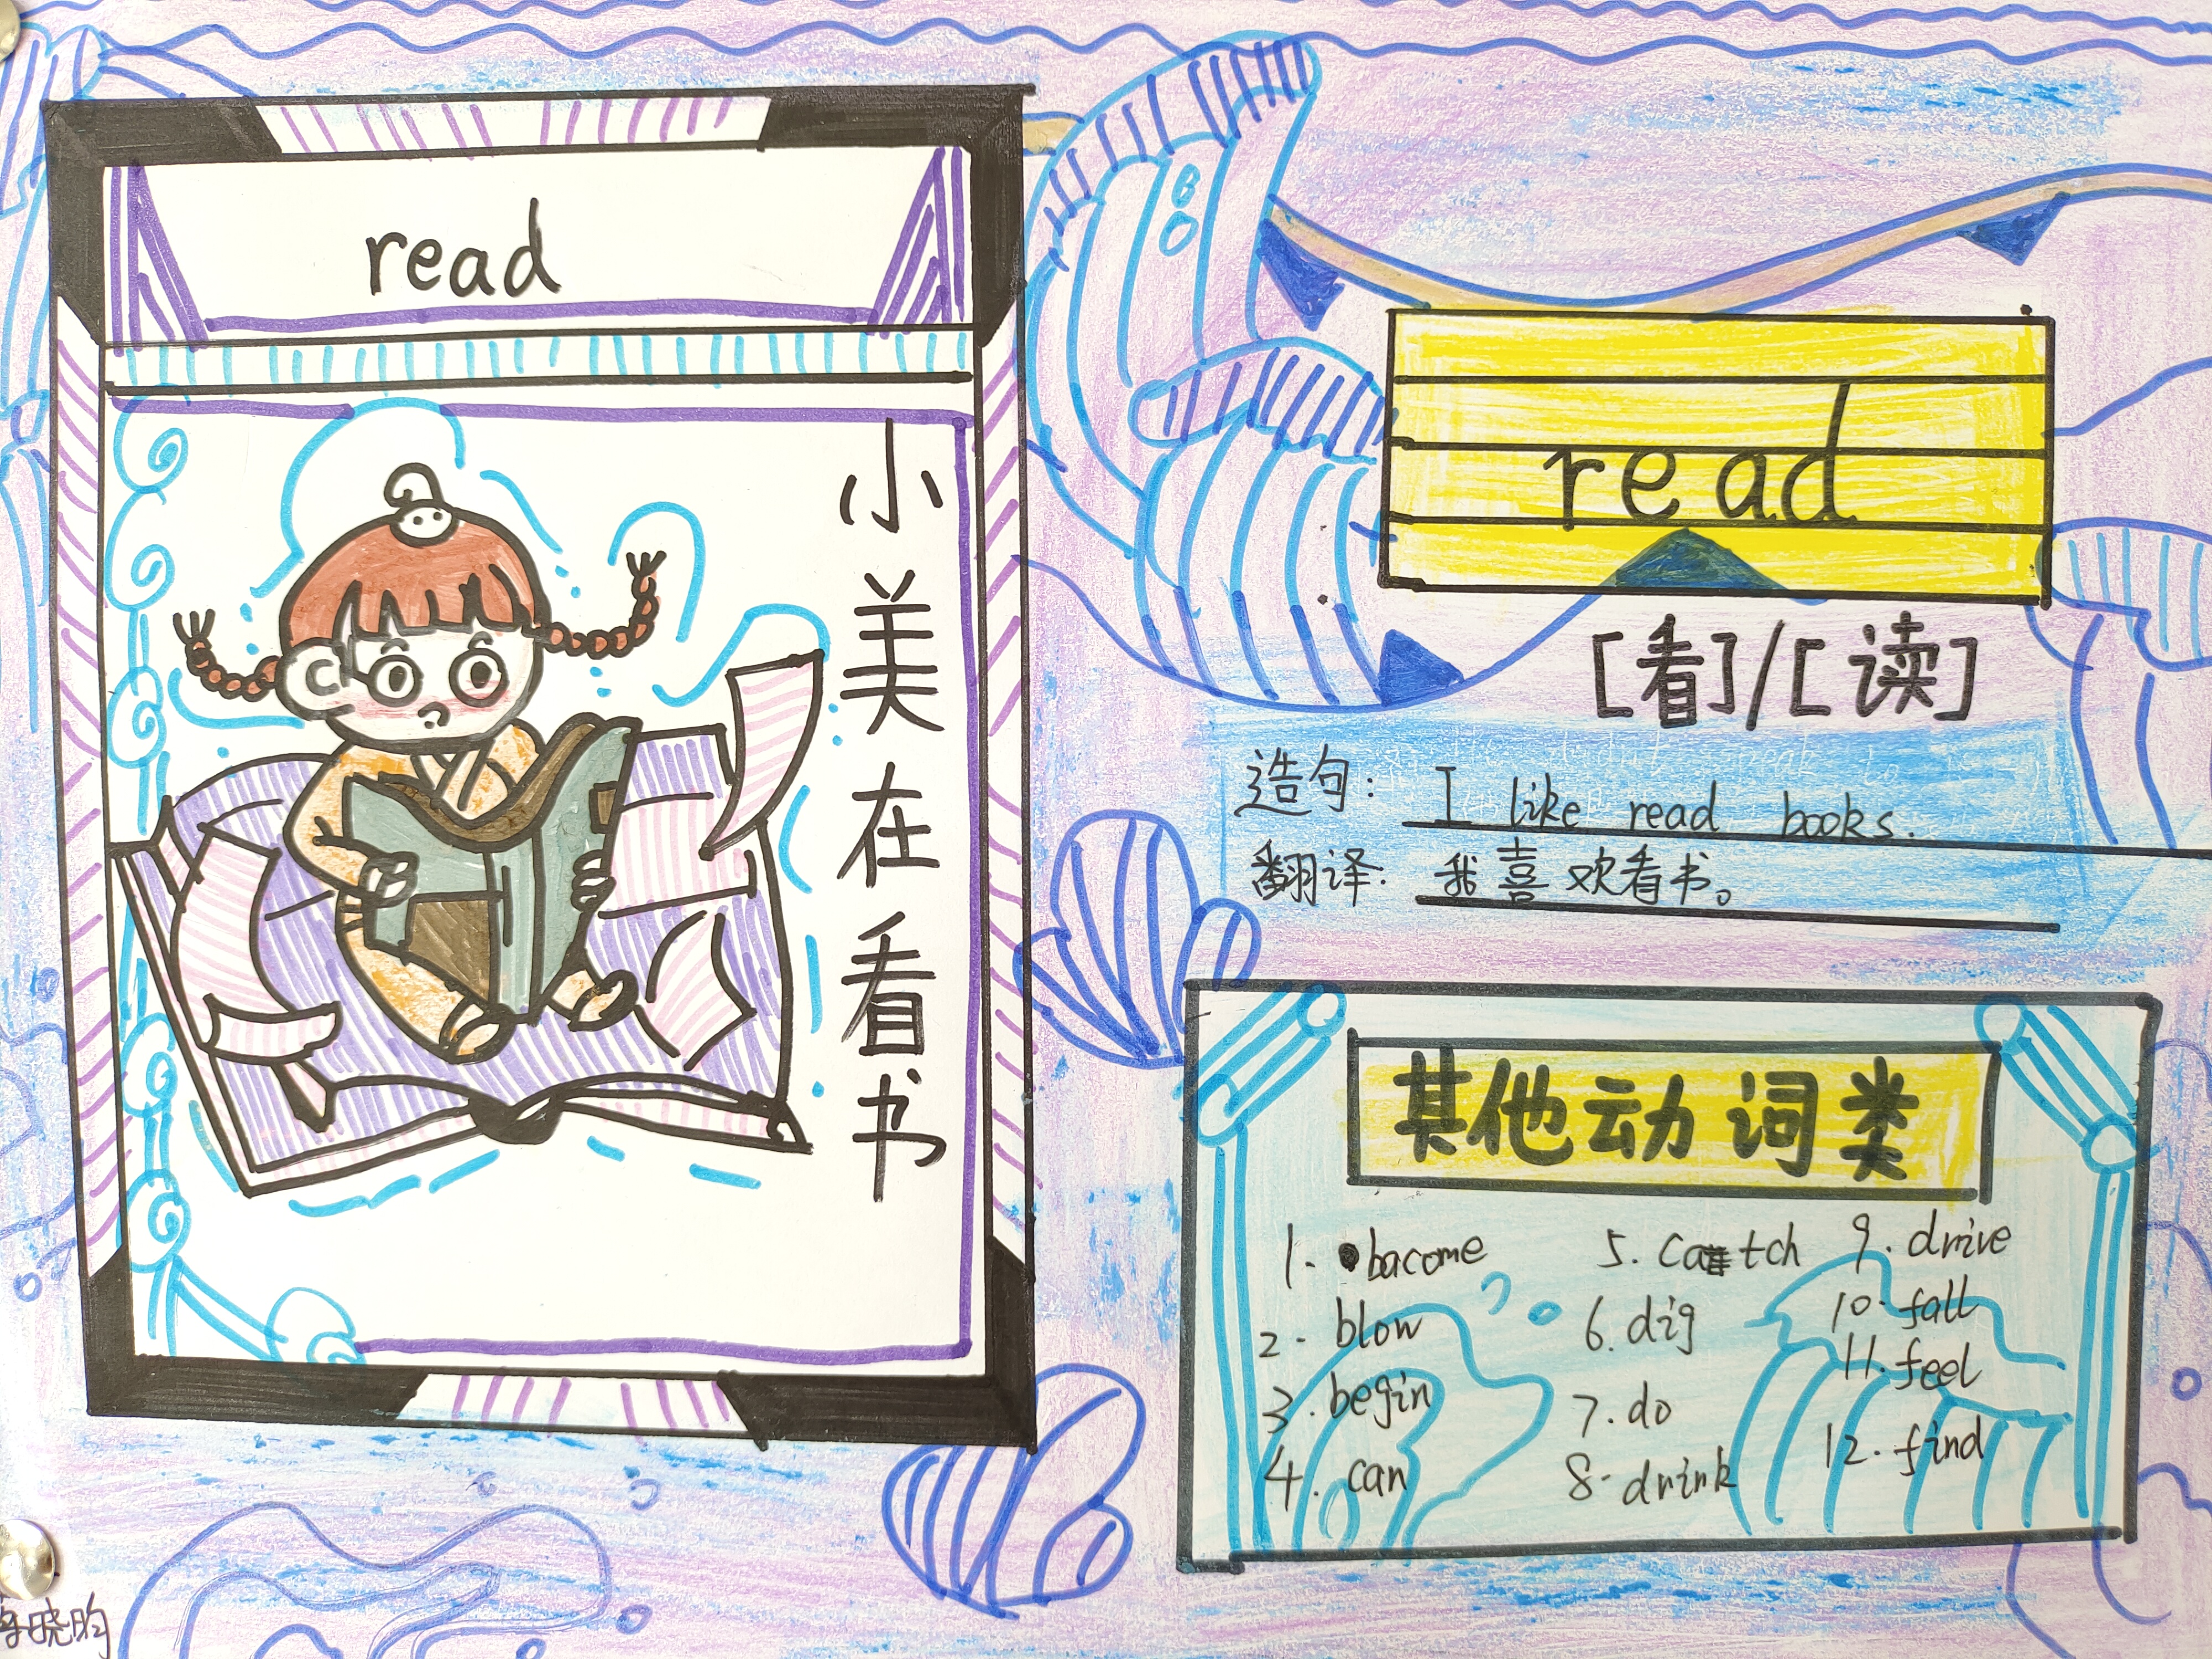 read
小美在看书
read
[看]/[读]
造句: I like read books.
翻译: 我喜欢看书。
其他动词类
1. bacome
2. blow
3. begin
4. can
5. catch
6. dig
7. do
8. drink
9. drive
10. fall
11. feel
12. find
晓昀